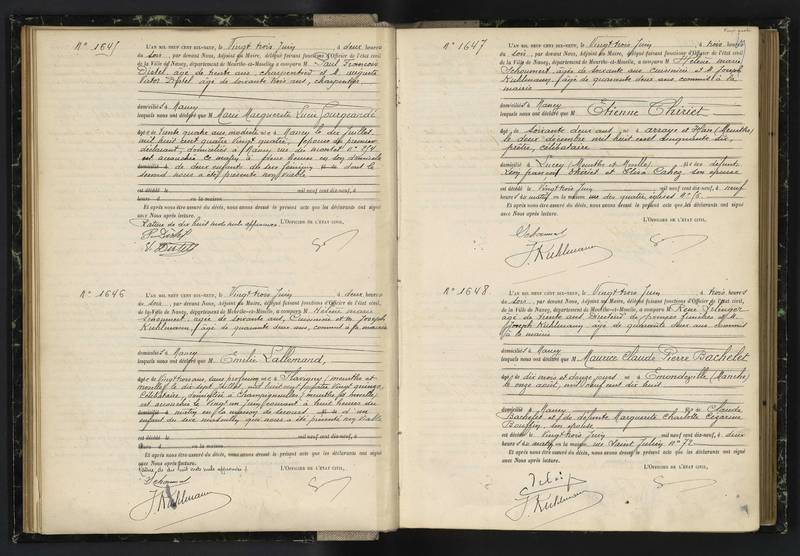 N° 1645
L'AN MIL NEUF CENT DIX-NEUF, le Vingt trois Juin, à deux heures
du soir, par devant Nous, Adjoint au Maire, délégué faisant fonctions d'Officier de l'état civil,
de la Ville de Nancy, département de Meurthe-et-Moselle, a comparu M Paul François
Distel, âgé de trente ans, charpentier et M Auguste
Victor Distel âgé de soixante trois ans, charpentier
domiciliés à Nancy
lesquels nous ont déclaré que M Marie Marguerite Lucie
âgée de trente quatre ans modiste née à Nancy le dix juillet
mil huit cent quatre vingt quatre, épouse du premier
déclarant, domiciliée à Nancy rue
est accouchée ce matin à heures en son domicile
de deux enfants du sexe féminin dont le
second nous a été présenté non viable
est décédé le mil neuf cent dix-neuf, à
heure d en la maison
Et après nous être assuré du décès, nous avons dressé le présent acte que les déclarants ont signé
avec Nous après lecture.
L'OFFICIER DE L'ÉTAT CIVIL,
Rature de dix huit mots nuls approuvée
P. Distel
V. Distel
N° 1646
L'AN MIL NEUF CENT DIX-NEUF, le Vingt trois Juin, à deux heures
du soir, par devant Nous, Adjoint au Maire, délégué faisant fonctions d'Officier de l'état civil,
de la Ville de Nancy, département de Meurthe-et-Moselle, a comparu M Hélène Marie
âgée de soixante ans, Cuisinière et M Joseph
Kuhlmann, âgé de quarante deux ans, commis à la mairie
domiciliés à Nancy
lesquels nous ont déclaré que M Emilie Lallemand,
âgée de vingt trois ans, sans profession née à Flavigny (Meurthe et
Moselle) le dix sept mil huit cent quatre vingt quinze,
Célibataire, domiciliée à Champigneulles (Meurthe et Moselle)
est accouchée le vingt un Juin courant à huit heures du
matin en la maison de secours d'un
enfant du sexe masculin, qui nous a été présenté non viable
est décédé le mil neuf cent dix-neuf, à
heure d en la maison
Et après nous être assuré du décès, nous avons dressé le présent acte que les déclarants ont signé
avec Nous après lecture.
L'OFFICIER DE L'ÉTAT CIVIL,
J. Kuhlmann
N° 1647
L'AN MIL NEUF CENT DIX-NEUF, le Vingt trois Juin, à trois heures
du soir, par devant Nous, Adjoint au Maire, délégué faisant fonctions d'Officier de l'état civil,
de la Ville de Nancy, département de Meurthe-et-Moselle, a comparu M Hélène Marie
âgée de soixante ans cuisinière et M Joseph
Kuhlmann, âgé de quarante deux ans commis à la
mairie
domiciliés à Nancy
lesquels nous ont déclaré que M Etienne Thiriet
âgé de soixante deux ans né à Arraye et Han (Meurthe)
le deux décembre mil huit cent cinquante six,
prêtre, célibataire
domicilié à Lucey (Meurthe et Moselle) fils des défunts
Thiriet et Elisa son épouse
est décédé le vingt trois Juin mil neuf cent dix-neuf, à neuf
heures du matin en la maison rue des quatre églises N°
Et après nous être assuré du décès, nous avons dressé le présent acte que les déclarants ont signé
avec Nous après lecture.
L'OFFICIER DE L'ÉTAT CIVIL,
J. Kuhlmann
N° 1648
L'AN MIL NEUF CENT DIX-NEUF, le Vingt trois Juin, à trois heures
du soir, par devant Nous, Adjoint au Maire, délégué faisant fonctions d'Officier de l'état civil,
de la Ville de Nancy, département de Meurthe-et-Moselle, a comparu M René
âgé de trente ans, Directeur de pompes funèbres et M
Joseph Kuhlmann âgé de quarante deux ans commis
à la mairie
domiciliés à Nancy
lesquels nous ont déclaré que M Maurice Claude Pierre Bachelet
âgé de dix mois et douze jours né à Emondeville (Manche)
le onze août mil neuf cent dix huit
domicilié à Nancy fils de Claude
Bachelet et feu défunte Marguerite Charlotte
son épouse
est décédé le vingt trois Juin mil neuf cent dix-neuf, à deux
heures du matin en la maison rue Saint Julien N° 72
Et après nous être assuré du décès, nous avons dressé le présent acte que les déclarants ont signé
avec Nous après lecture.
L'OFFICIER DE L'ÉTAT CIVIL,
J. Kuhlmann